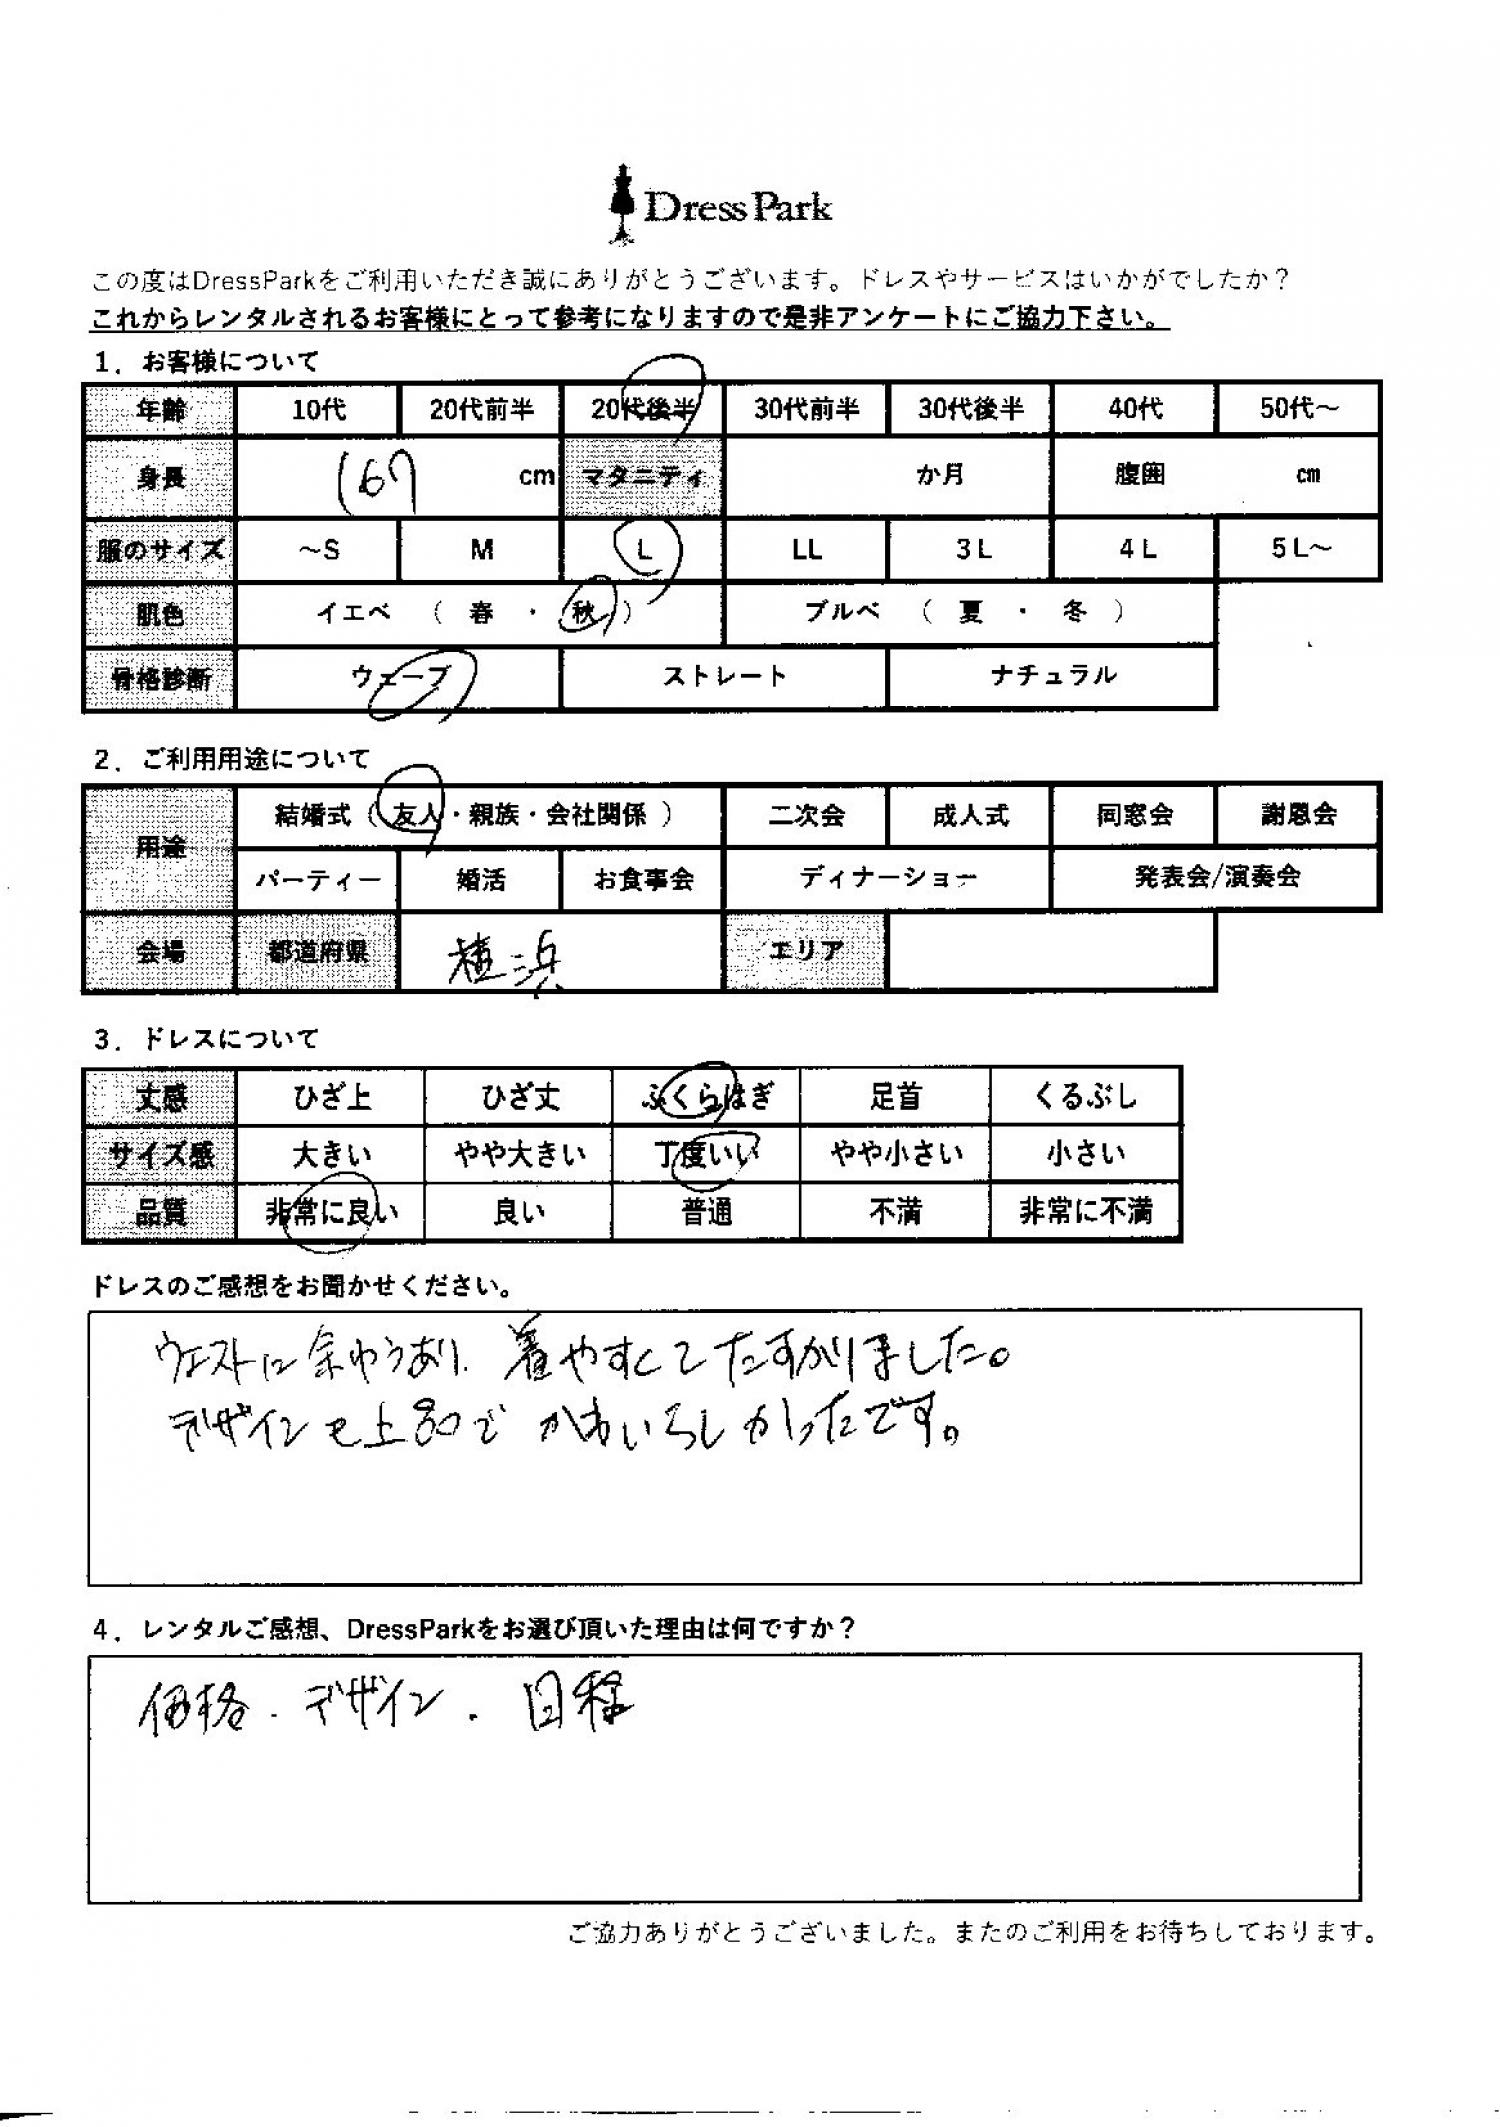 Dress Park
この度はDressParkをご利用いただき誠にありがとうございます。ドレスやサービスはいかがでしたか？
これからレンタルされるお客様にとって参考になりますので是非アンケートにご協力下さい。
1．お客様について
年齢 10代 20代前半 20代後半 30代前半 30代後半 40代 50代～
身長 167 cm マタニティ か月 腹囲 cm
服のサイズ ～S M L LL 3L 4L 5L～
肌色 イエベ （ 春 ・ 秋 ） ブルベ （ 夏 ・ 冬 ）
骨格診断 ウェーブ ストレート ナチュラル
2．ご利用用途について
用途 結婚式（ 友人・親族・会社関係 ） 二次会 成人式 同窓会 謝恩会
パーティー 婚活 お食事会 ディナーショー 発表会/演奏会
会場 都道府県 横浜 エリア
3．ドレスについて
丈感 ひざ上 ひざ丈 ふくらはぎ 足首 くるぶし
サイズ感 大きい やや大きい 丁度いい やや小さい 小さい
品質 非常に良い 良い 普通 不満 非常に不満
ドレスのご感想をお聞かせください。
ウエストに余ゆうあり、着やすくてたすかりました。
デザインも上品で かわいらしかったです。
4．レンタルご感想、DressParkをお選び頂いた理由は何ですか？
価格．デザイン．日程
ご協力ありがとうございました。またのご利用をお待ちしております。